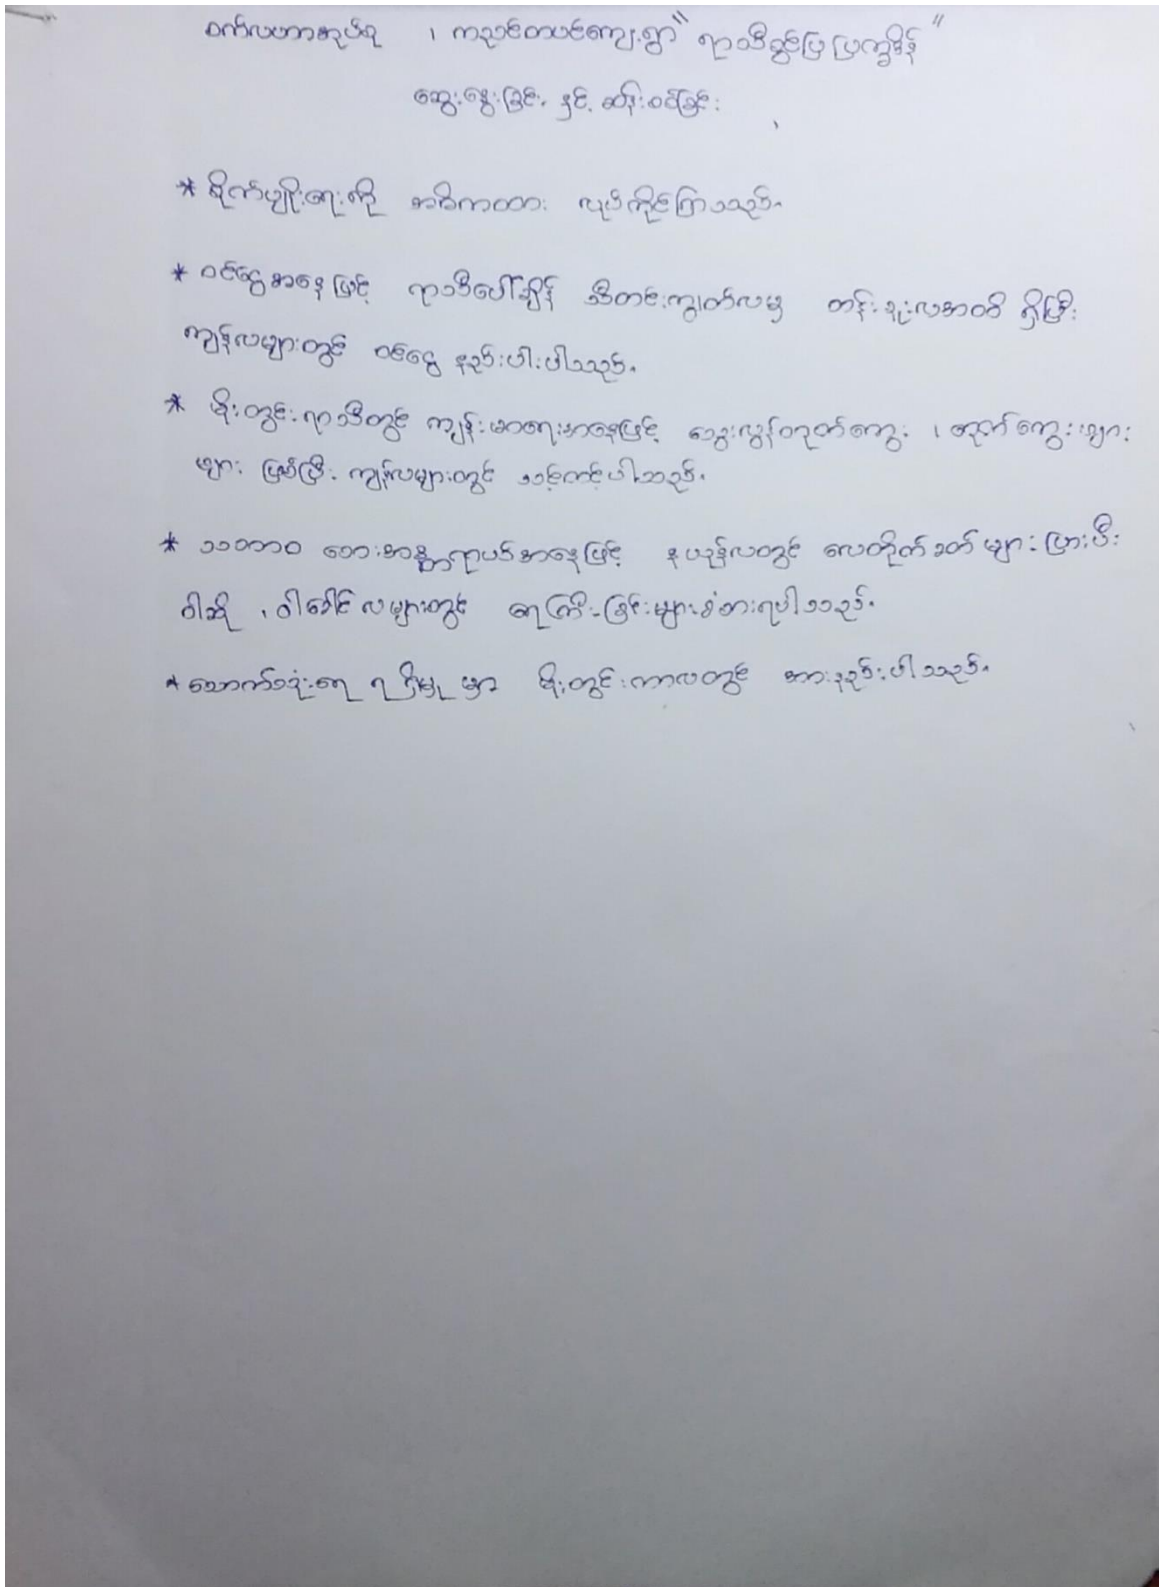 ဝက်လဟာအုပ်စု ၊ ကညင်တပင်ကျေးရွာ "ရာသီခွင်ပြ ပြက္ခဒိန်"
ဆွေးနွေးခြင်း နှင့် ဆန်းစစ်ခြင်း
* စိုက်ပျိုးရေးကို အဓိကထား လုပ်ကိုင်ကြသည်။
* ဝင်ငွေအနေဖြင့် ရာသီပေါ်ချိန် သီတင်းကျွတ်လမှ တန်ခူးလအထိ ရှိပြီး
ကျန်လများတွင် ဝင်ငွေ နည်းပါးပါသည်။
* မိုးတွင်းရာသီတွင် ကျန်းမာရေးအနေဖြင့် သွေးလွန်တုတ်ကွေး ၊ တုတ်ကွေးဖျား
များ ဖြစ်ပြီး ကျန်လများတွင် သင့်တင့်ပါသည်။
* သဘာဝ ဘေးအန္တရာယ်အနေဖြင့် နယုန်လတွင် လေတိုက်ခတ်များ ပြားပီး
ဝါဆို ၊ ဝါခေါင်လများတွင် ရေကြီးခြင်းများ ခံစားရပါသည်။
* သောက်သုံးရေ ရရှိမှု မှာ မိုးတွင်းကာလတွင် အားနည်းပါသည်။